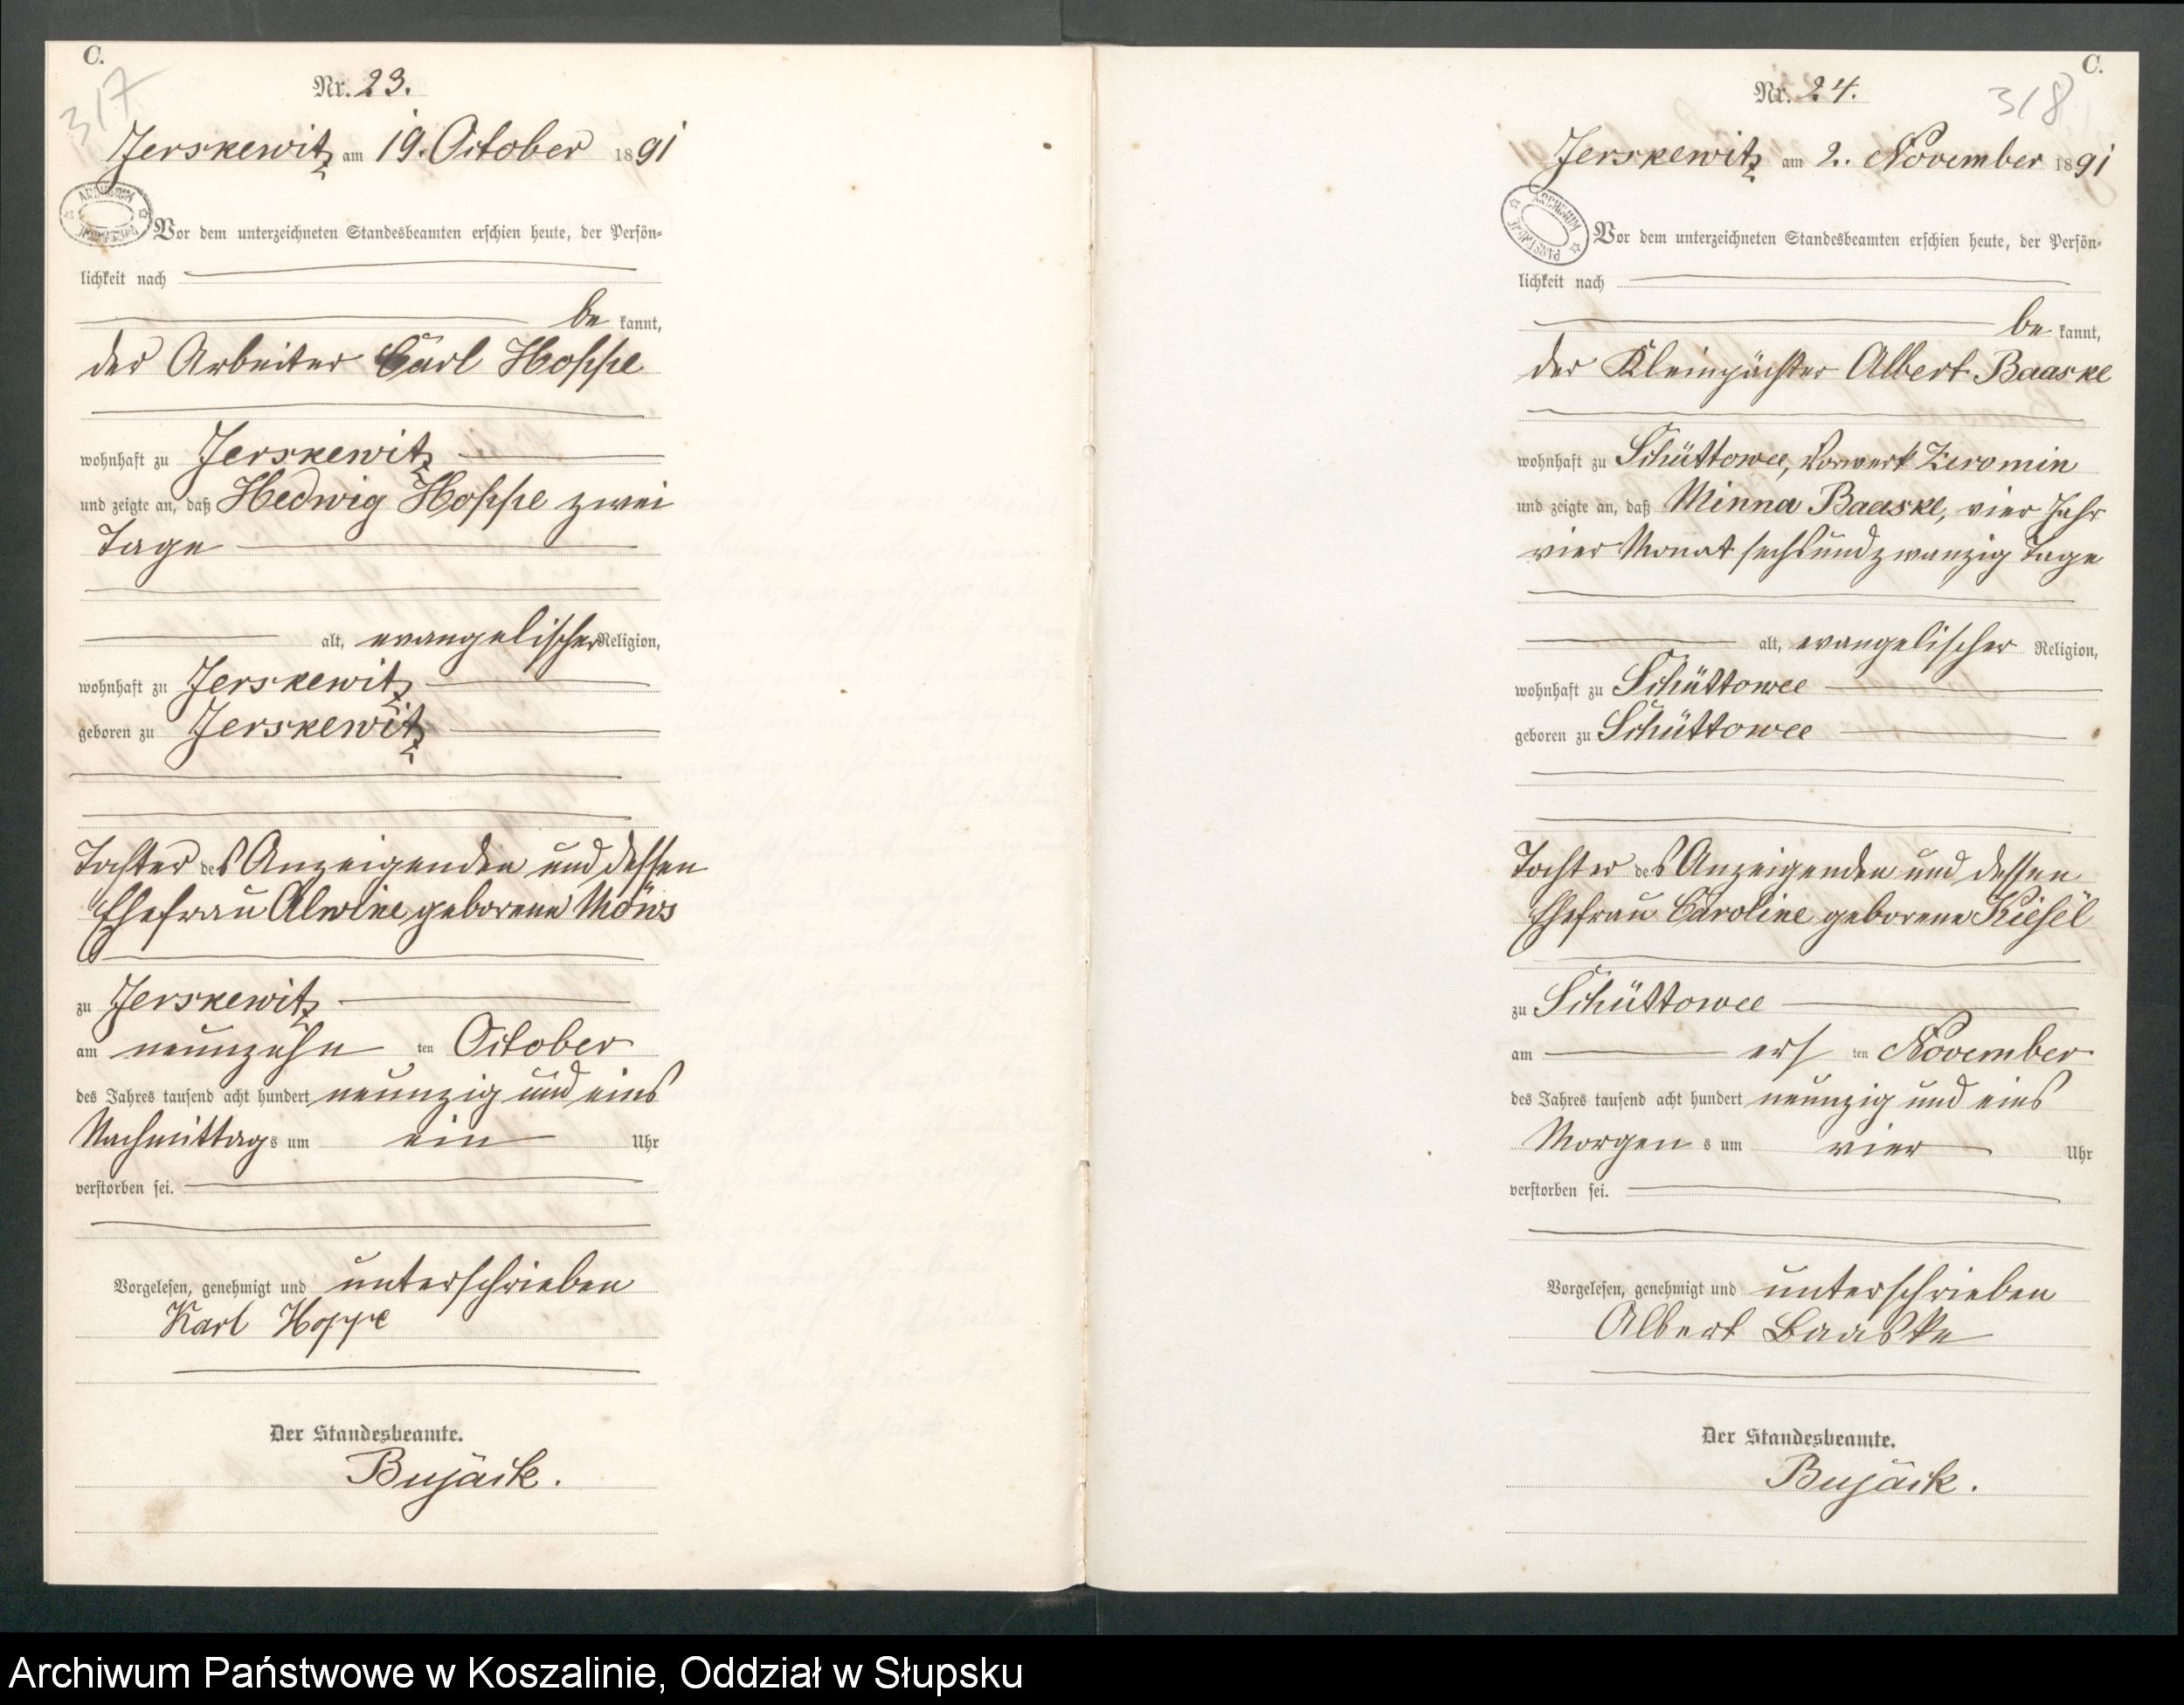 C.
317
Nr. 23.
Jerskewitz am 19. October 1891
ARCHIWUM PAŃSTWOWE
Vor dem unterzeichneten Standesbeamten erschien heute, der Persön-
lichkeit nach
be kannt,
der Arbeiter Carl Hoppe
wohnhaft zu Jerskewitz
und zeigte an, daß Hedwig Hoppe zwei
Tage
alt, evangelischer Religion,
wohnhaft zu Jerskewitz
geboren zu Jerskewitz
Tochter des Anzeigenden und dessen
Ehefrau Alwine geborene Möws
zu Jerskewitz
am neunzehn ten October
des Jahres tausend acht hundert neunzig und eins
Nachmittags um ein Uhr
verstorben sei.
Vorgelesen, genehmigt und unterschrieben
Karl Hoppe
Der Standesbeamte.
Bujack.
C.
318
Nr. 24.
Jerskewitz am 2. November 1891
ARCHIWUM PAŃSTWOWE
Vor dem unterzeichneten Standesbeamten erschien heute, der Persön-
lichkeit nach
be kannt,
der Kleinpächter Albert Baaske
wohnhaft zu Schüttowee, Vorwerk Zeromin
und zeigte an, daß Minna Baaske, vier Jahr
vier Monat sechsundzwanzig Tage
alt, evangelischer Religion,
wohnhaft zu Schüttowee
geboren zu Schüttowee
Tochter des Anzeigenden und dessen
Ehefrau Caroline geborene Kiesel
zu Schüttowee
am ers ten November
des Jahres tausend acht hundert neunzig und eins
Morgens um vier Uhr
verstorben sei.
Vorgelesen, genehmigt und unterschrieben
Albert Baaske
Der Standesbeamte.
Bujack.
Archiwum Państwowe w Koszalinie, Oddział w Słupsku